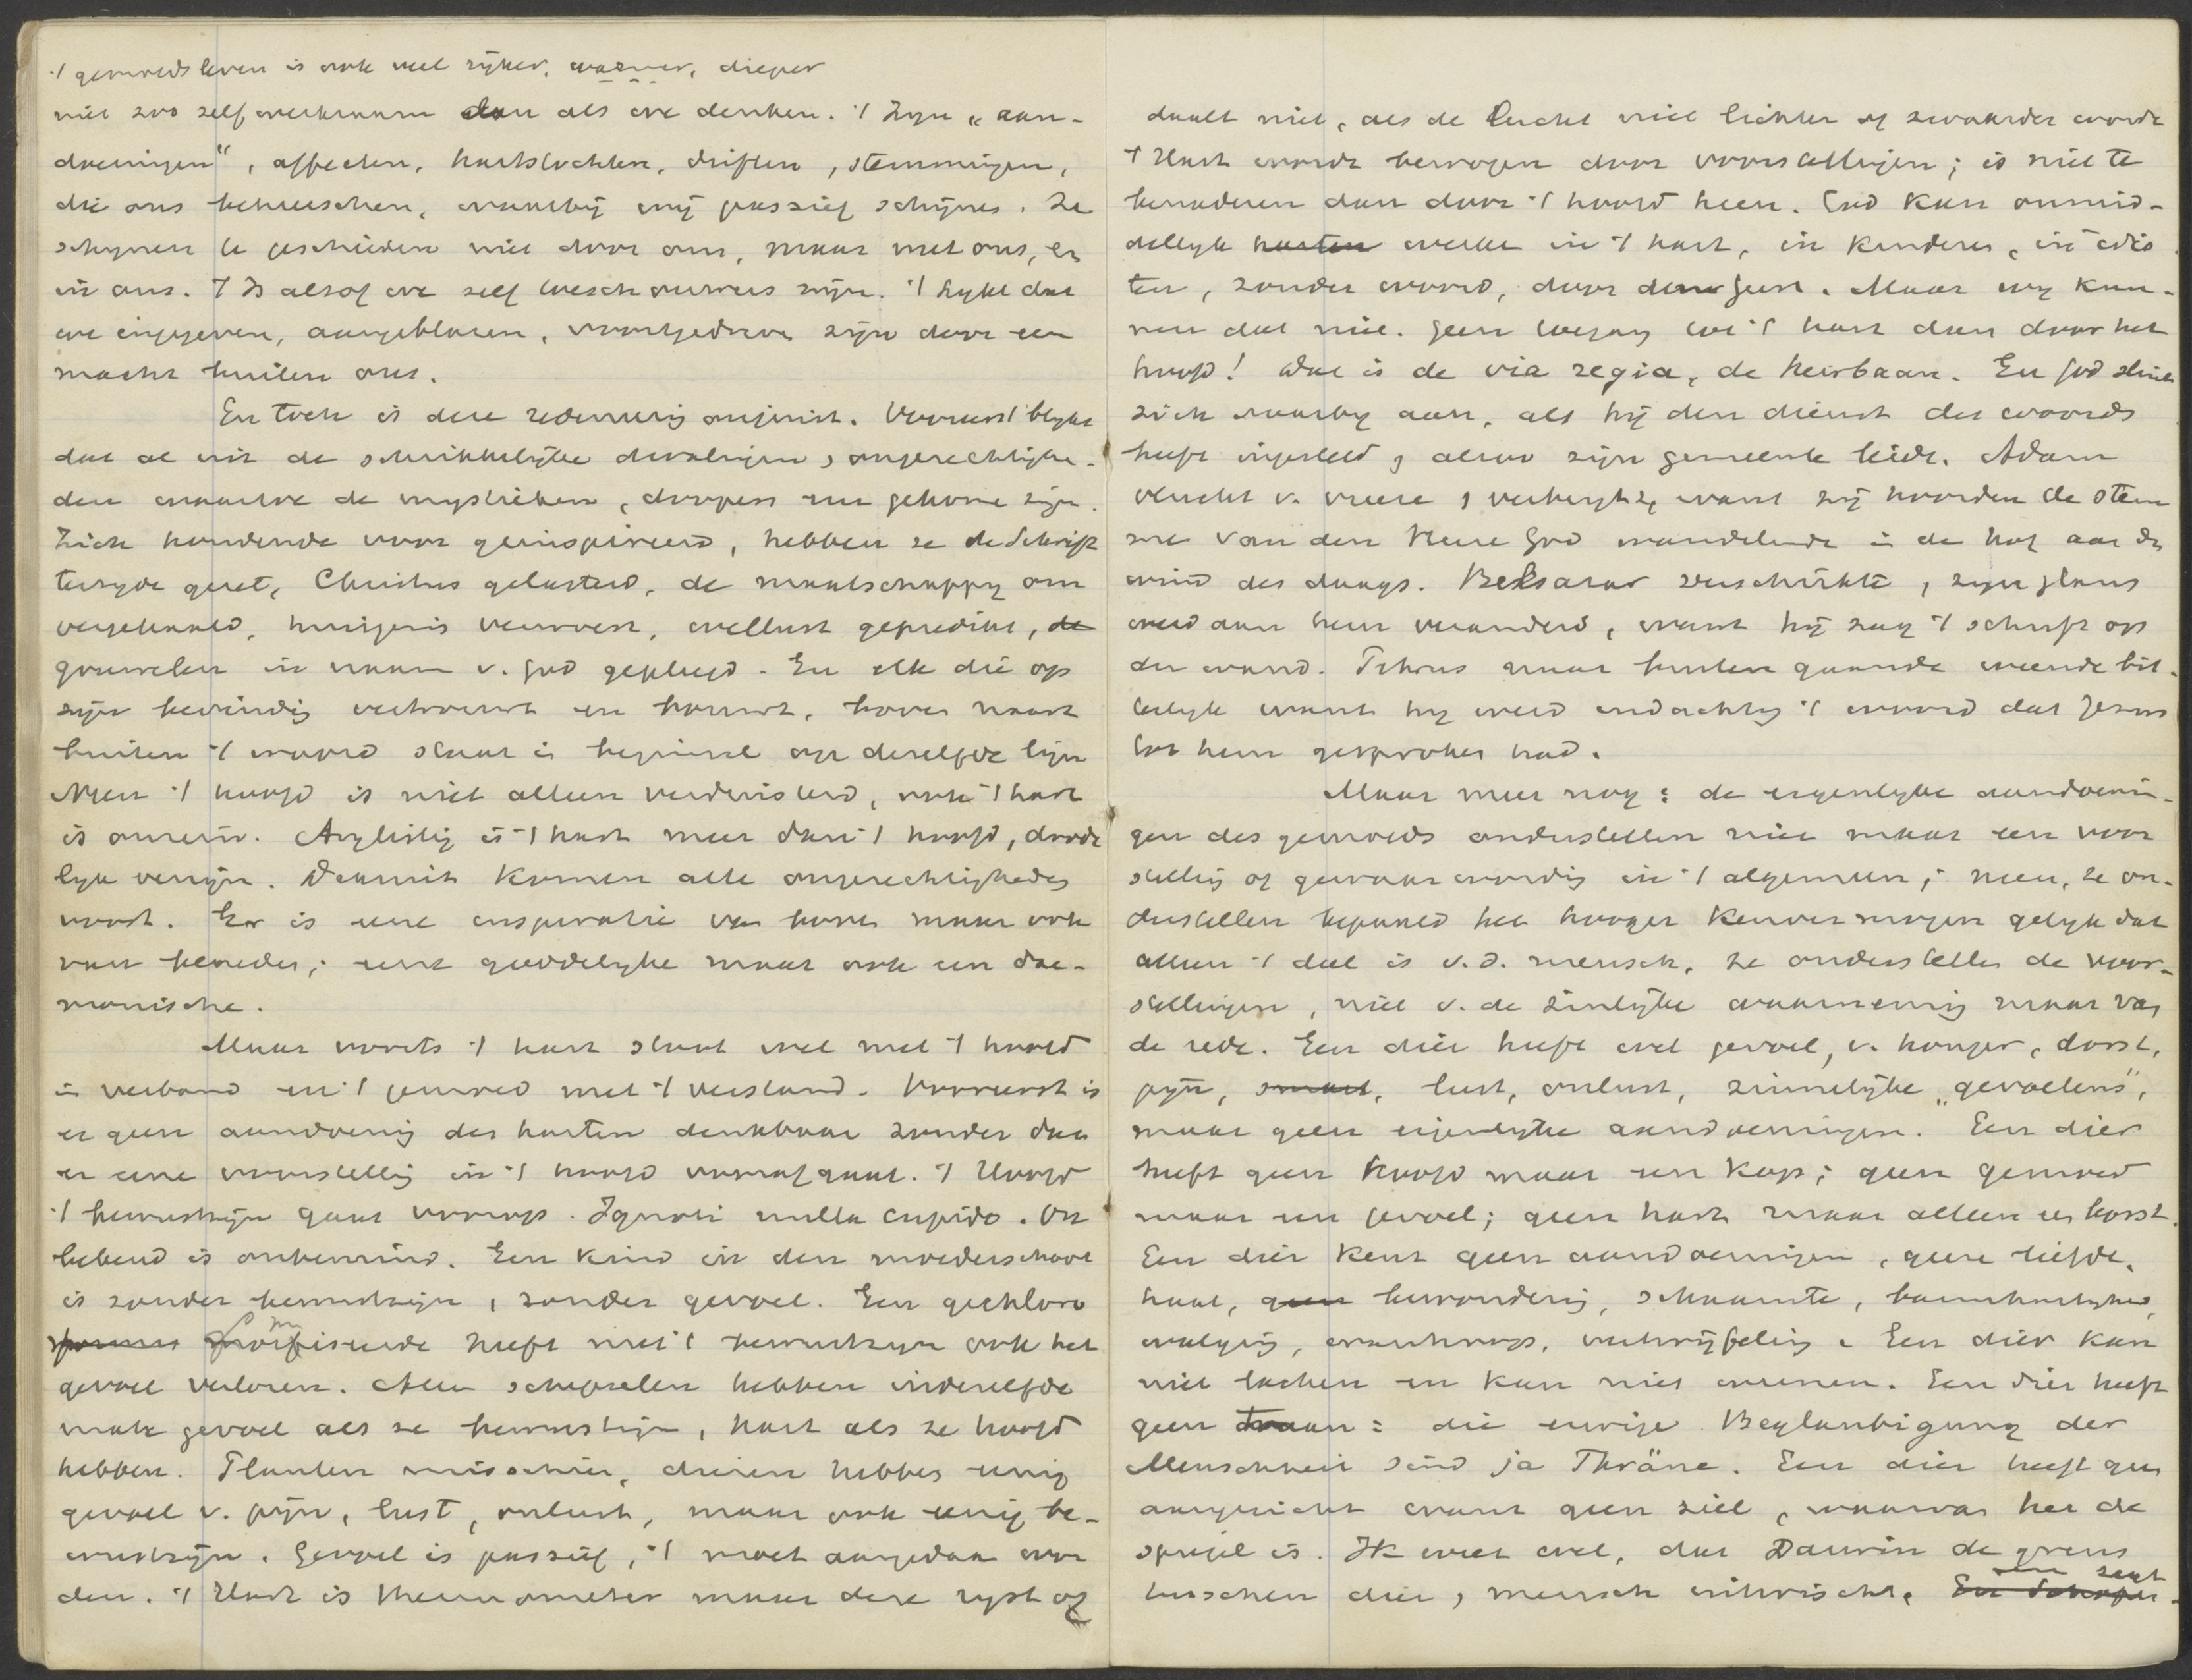 't gemoedsleven is ook veel rijker, warmer, dieper
niet zoo zelfwerkzaam dan als we denken. 't Zijn „aan-
doeningen", affecten, hartstochten, driften, stemmingen,
die ons beheerschen, waarbij wij passief schijnen. Ze
schijnen te geschieden niet door ons, maar met ons, en
in ons. 't Is alsof we zelf toeschouwers zijn. 't Lykt dat
we ingegeven, aangeblazen, voortgedreven zijn door een
macht buiten ons.
En toch is deze redenering onjuist. Vooreerst blykt
dat al uit de schrikkelijke dwalingen, ongerechtighe-
den waartoe de mystieken, doopers enz gekomen zijn.
Zich houdende voor geinspireerd, hebben ze de Schrift
terzyde gezet, Christus gelasterd, de maatschappy om
vergehaald, huisgezin verwoest, wellust gepredikt, de
gruwelen in naam v. God gepleegd. En elk die op
zijn bevinding vertrouwt en bouwt, boven naast
buiten 't woord staat in beginsel op dezelfde lijn
Neen 't hoofd is niet alleen verduisterd, ook 't hart
is onrein. Arglistig is 't hart meer dan 't hoofd, doode
lyk venijn. Daaruit komen alle ongerechtigheden
voort. Er is eene inspiratie van boven maar ook
van beneden; eene goddelyke maar ook een dae-
monische.
Maar voorts 't hart staat wel met 't hoofd
in verband en 't gemoed met 't verstand. Vooreerst is
er geen aandoening des harten denkbaar zonder dat
er eene voorstelling in 't hoofd vooraf gaat. 't Hoofd
't bewustzijn gaat voorop. Ignoti nulla cupido. On
bekend is onbemind. Een kind in den moederschoot
is zonder bewustzijn, zonder gevoel. Een gechloro
formiseerde heeft met 't bewustzijn ook het
gevoel verloren. Alle schepselen hebben in dezelfde
mate gevoel als ze bewustzijn, hart als ze hoofd
hebben. Planten misschien, dieren hebben eenig
gevoel v. pijn, lust, onlust, maar ook eenig be-
wustzijn. Gevoel is passief, 't moet aangedaan wor
den. 't Hart is thermometer maar deze ryst of
daalt niet, als de lucht niet lichter of zwaarder wordt
't Hart wordt bewogen door voorstellingen; is niet te
benaderen dan door 't hoofd heen. God kan onmid-
dellyk harten werken in 't hart, in kinderen, in idio
ten, zonder woord, door den Geest. Maar wy kun-
nen dat niet. Geen toegang tot 't hart dan door het
hoofd! Dat is de via regia, de heirbaan. En God sluit
zich daarby aan, als hij den dienst des woords
heeft ingesteld, alzoo zijn gemeente leidt. Adam
vlucht v. vreeze, verbergt z, want zij hoorden de stem
me van den Heere God wandelende in de hof aan de
wind des daags. Belsazar verschrikte, zijn glans
werd aan hem veranderd, want hij zag 't schrift op
den wand. Petrus naar buiten gaande weende bit-
terlyk want hy werd indachtig 't woord dat Jezus
tot hem gesproken had.
Maar meer nog: de eigenlyke aandoenin-
gen des gemoeds onderstellen niet maar een voor
stelling of gewaarwording in 't algemeen; neen, ze on-
derstellen bepaald het hooger kenvermogen gelyk dat
alleen 't deel is v.d. mensch, ze onderstellen de voor-
stellingen, niet v. de zinlijke waarneming maar van
de rede. Een dier heeft wel gevoel, v. honger, dorst,
pijn, smart, lust, onlust, zinnelijke „gevoelens",
maar geen eigenlyke aandoeningen. Een dier
heeft geen hoofd maar een kop; geen gemoed
maar een gevoel; geen hart maar alleen een borst.
Een dier kent geen aandoeningen, geene liefde,
haat, geen bewondering, schaamte, barmhartigheid,
walging, wanhoop, vertwijfeling. Een dier kan
niet lachen en kan niet weenen. Een dier heeft
geen traan: die ewige Beglaubigung der
Menschheit sind ja Thräne. Een dier heeft geen
aangezicht want geen ziel, waarvan het de
spiegel is. Ik weet wel, dat Darwin de grens
tusschen dier, mensch uitwischt.